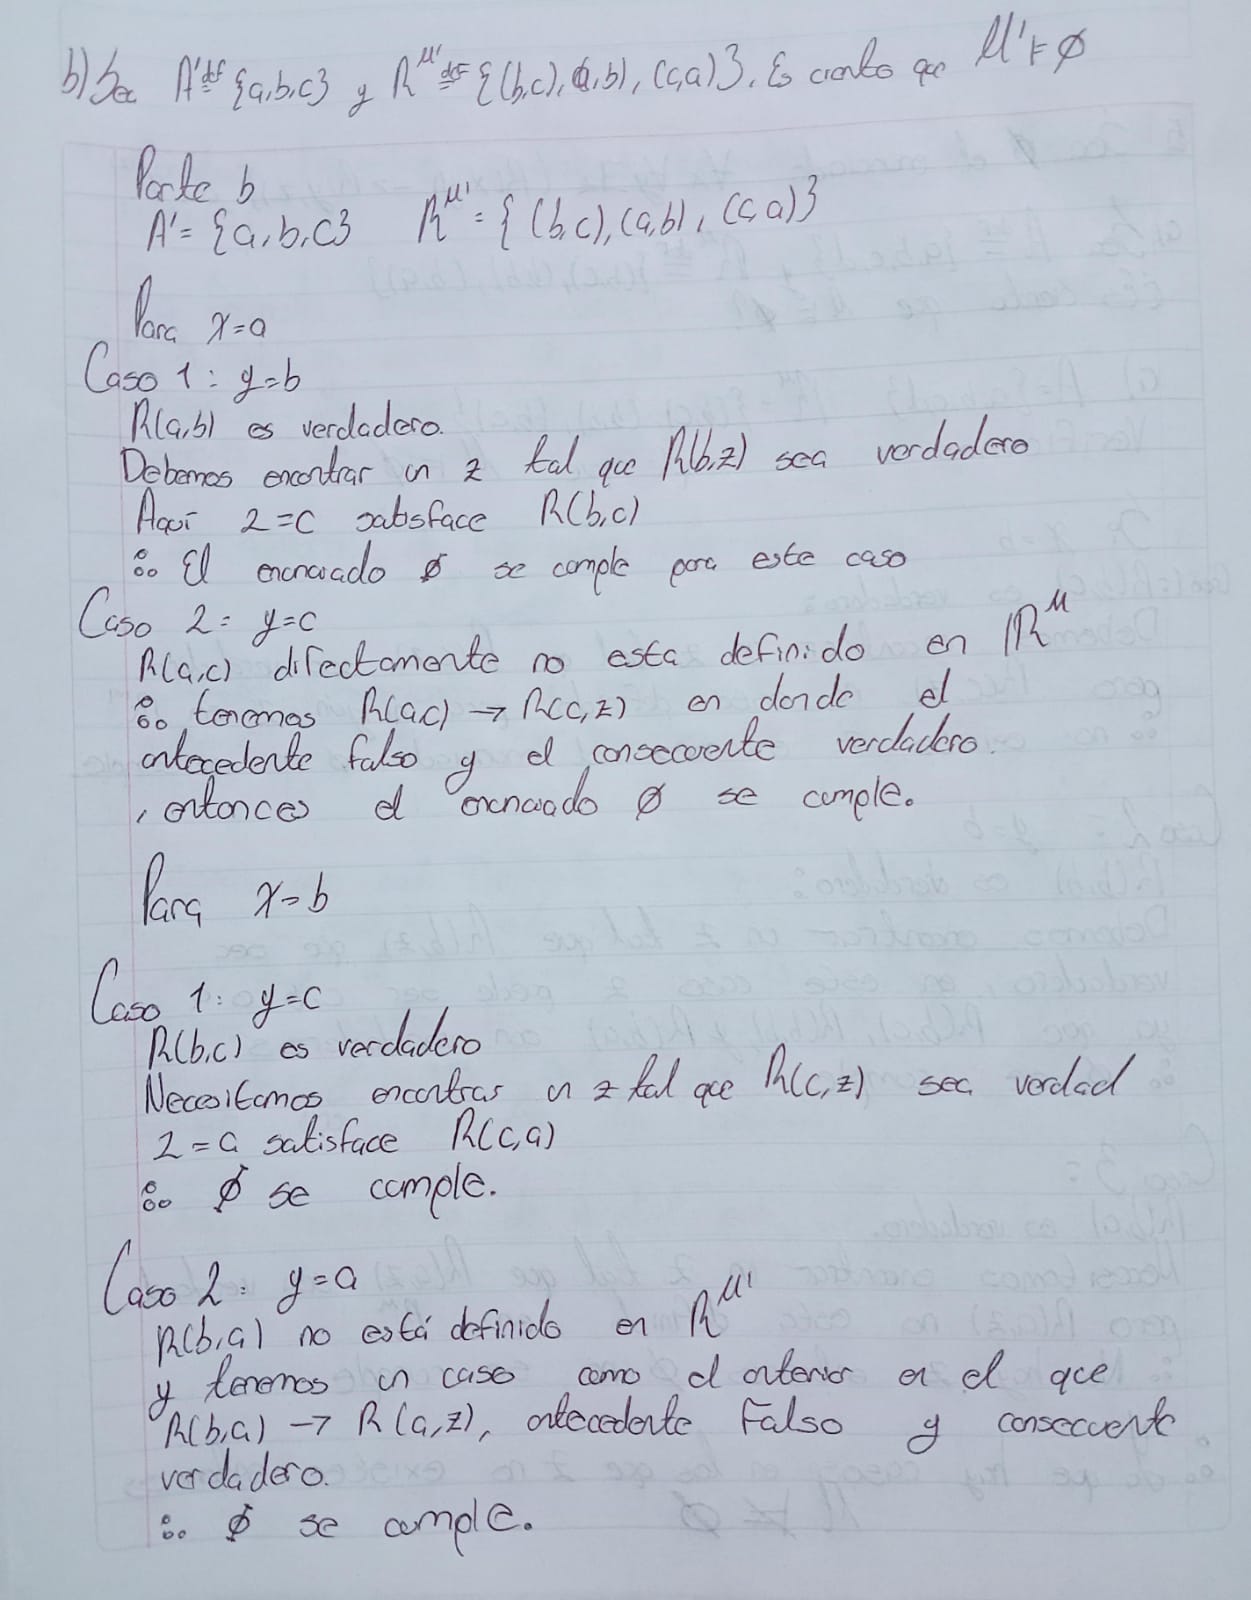 b) Sea A' def= {a,b,c} y R^M' def= {(b,c), (a,b), (c,a)}. Es cierto que M' ⊨ Ø
Parte b
A' = {a,b,c} R^M' = { (b,c), (a,b), (c,a)}
Para x=a
Caso 1: y=b
R(a,b) es verdadero.
Debemos encontrar un z tal que R(b,z) sea verdadero
Aquí z=c satisface R(b,c)
∴ El enunciado Ø se cumple para este caso
Caso 2: y=c
R(a,c) directamente no esta definido en R^M
∴ tenemos R(a,c) → R(c,z) en donde el
antecedente falso y el consecuente verdadero.
, entonces el enunciado Ø se cumple.
Para x=b
Caso 1: y=c
R(b,c) es verdadero
Necesitamos encontrar un z tal que R(c,z) sea verdad
z=a satisface R(c,a)
∴ Ø se cumple.
Caso 2: y=a
R(b,a) no está definido en R^M'
y tenemos un caso como el anterior en el que
R(b,a) → R(a,z), antecedente Falso y consecuente
verdadero.
∴ Ø se cumple.